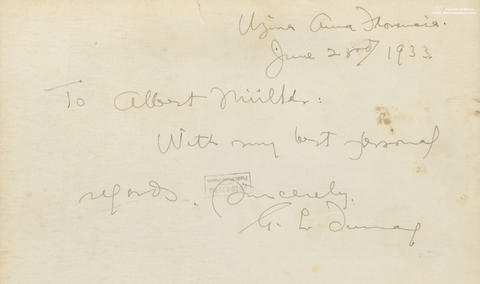 Usina Anna Florencia.
June 23rd, 1933
To Albert Müller:
With my best personal
regards. Sincerely.
G. L.